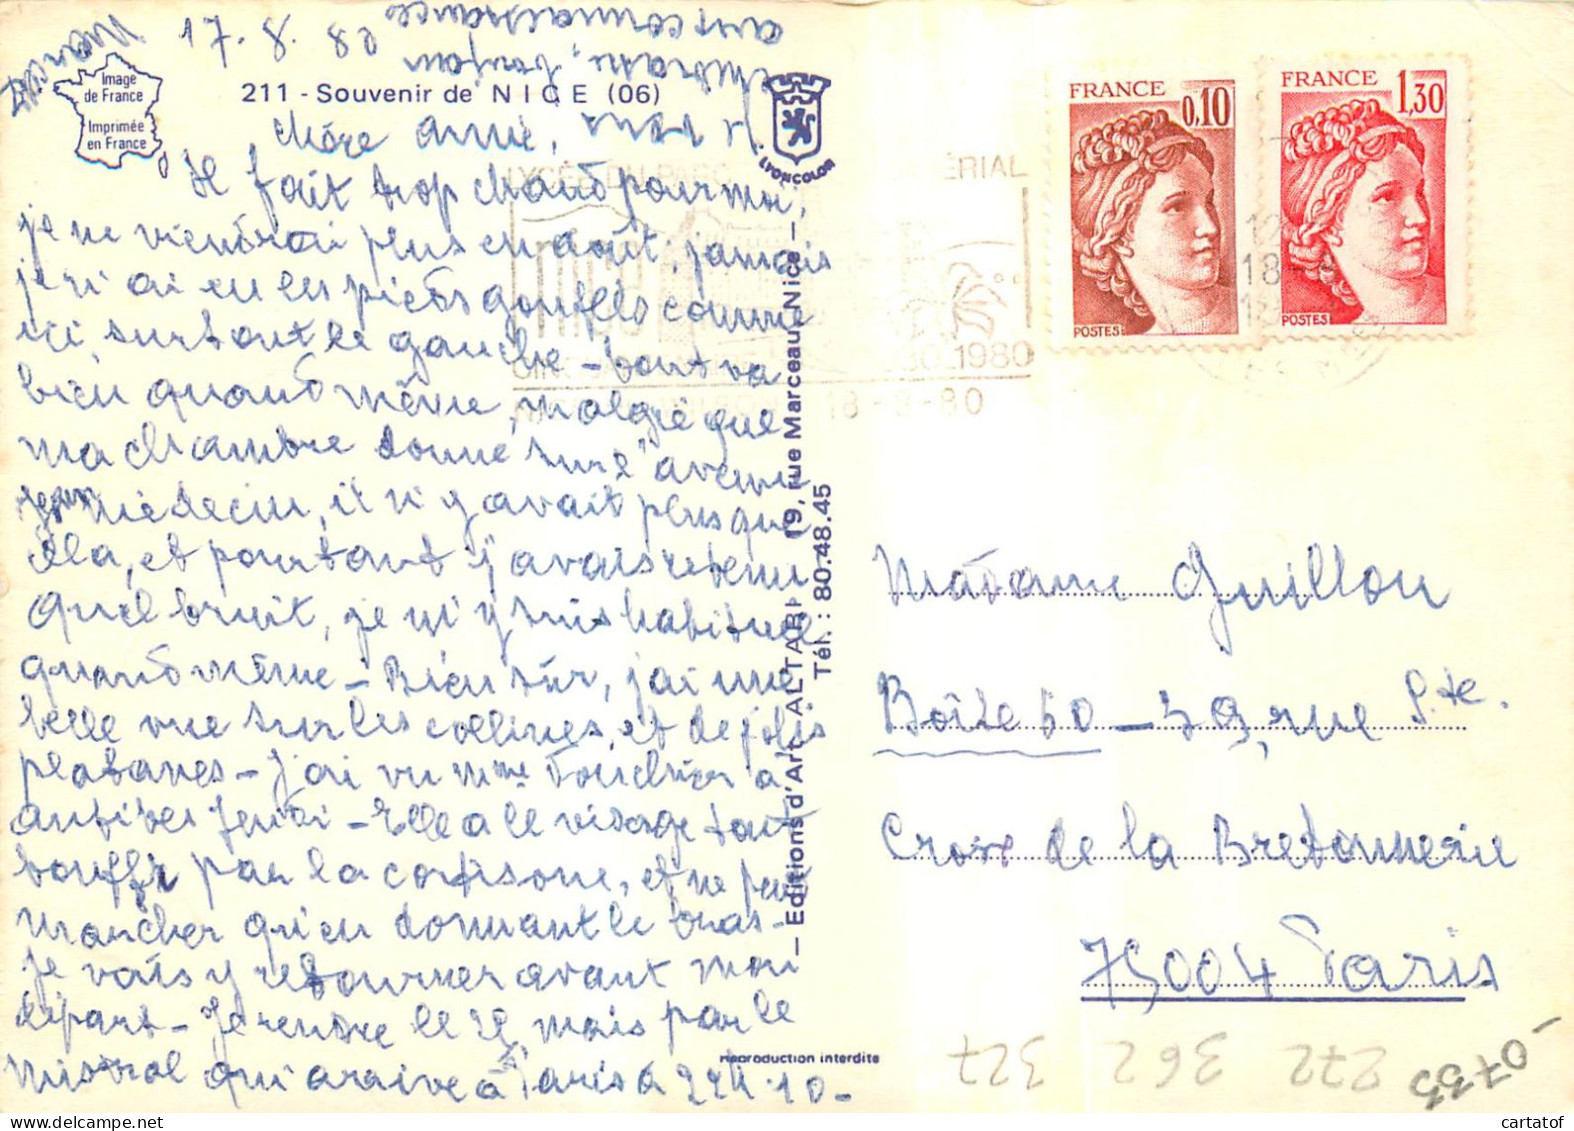 17.8.80
Image
de France
Imprimée
en France
211 - Souvenir de NICE (06)
LYONCOLOR
chère amie,
Il fait trop chaud pour moi,
je ne viendrai plus en août, jamais
je n'ai eu les pieds gonflés comme
ici surtout le gauche - tout va
bien quand même, malgré que
ma chambre donne sur l'avenue
Jean Médecin, il n'y avait plus que
cela, et pourtant j'avais retenu
Quel bruit, je m'y suis habituée
quand même - Bien sûr, j'ai une
belle vue sur les collines, et de jolis
platanes - J'ai vu Mme
antibes jeudi - Elle a le visage tout
bouffi par la cortisone, et ne peut
marcher qu'en donnant le bras -
Je vais y retourner avant mon
départ - Je rentre le 28, mais par le
mistral qui arrive à Paris à 22h.10 -
embrasse, bonjour
aux connaissances
FRANCE
0,10
POSTES
FRANCE
1,30
POSTES
1980
18-8-80
- Editions d'Art ALTARI - 19, rue Marceau, Nice -
Tél. : 80.48.45
Madame Guillou
Boîte 50 - 39, rue Ste.
Croix de la Bretonnerie
75004 Paris
reproduction interdite
327 362 272
0735-
cartatof
www.delcampe.net